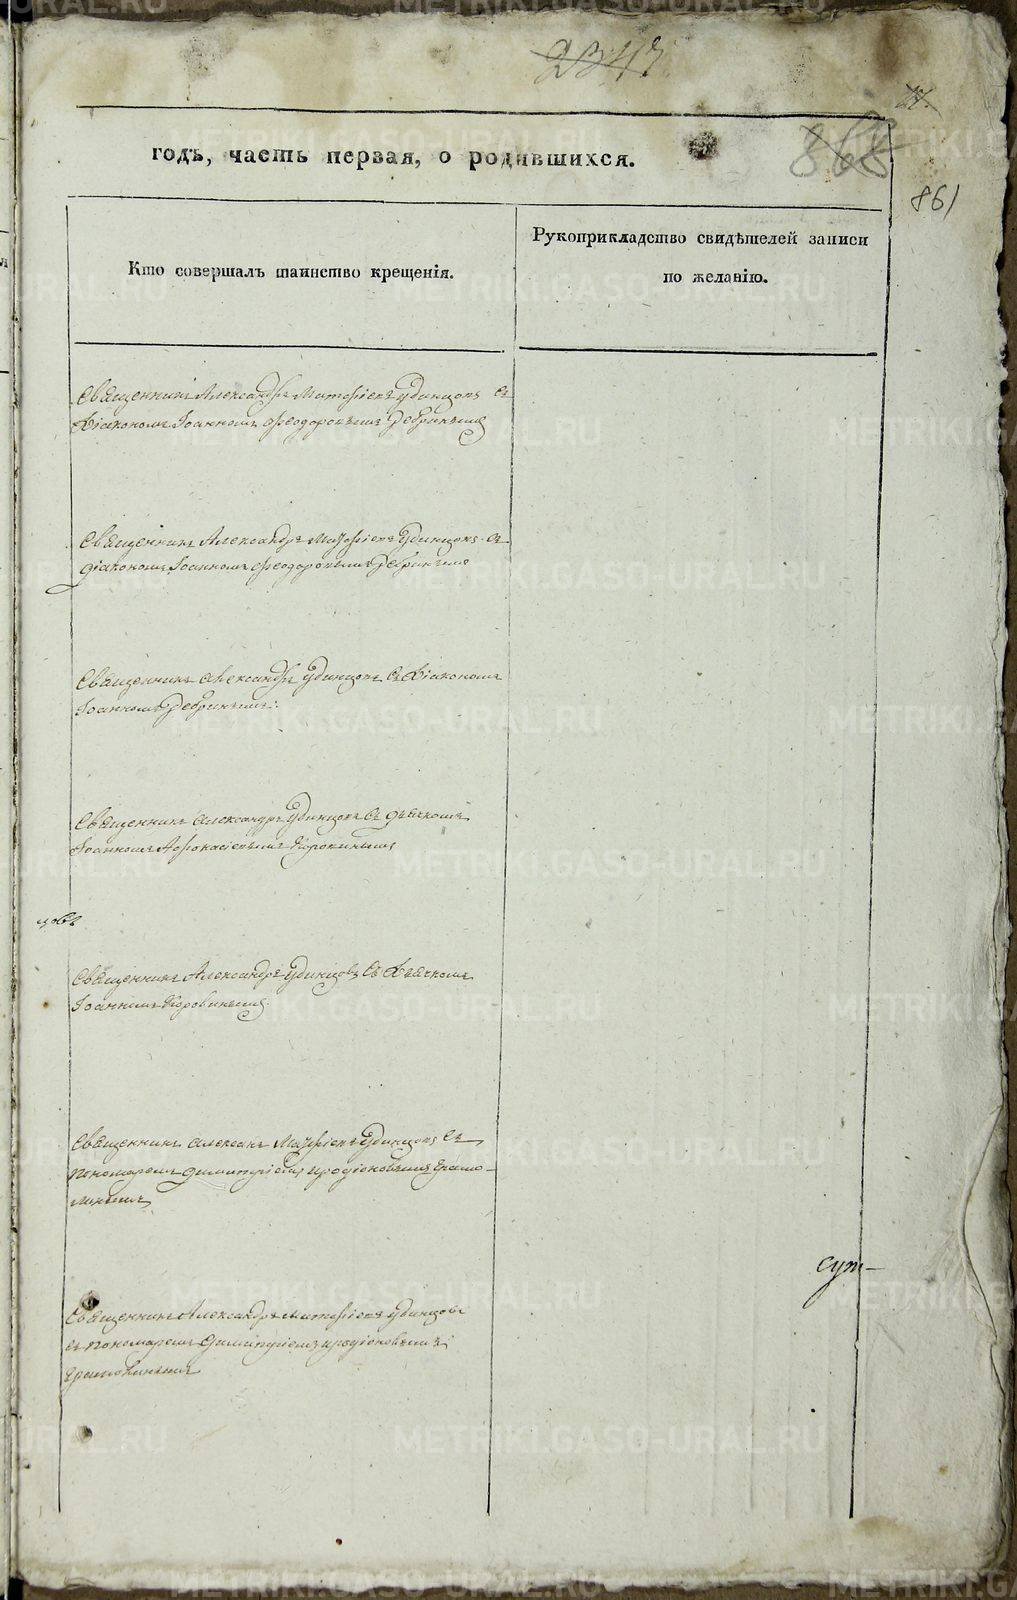 2347
годъ, часть первая, о родившихся.
868
861
Кто совершалъ таинство крещенія.
Рукоприкладство свидѣтелей записи
по желанію.
Священникъ Александръ Матѳіевъ Удинцовъ съ
Діакономъ Іоанномъ Ѳеодоровымъ Дебринымъ
Священникъ Александръ Матѳіевъ Удинцовъ съ
діакономъ Іоанномъ Ѳеодоровымъ Дебринымъ
Священникъ Александръ Удинцовъ съ Діакономъ
Іоанномъ Дебринымъ
Священникъ Александръ Удинцовъ съ дьячкомъ
Іоанномъ Коровинымъ
цовъ
Священникъ Александръ Удинцовъ съ Дьячкомъ
Іоанномъ Коровинымъ
Священникъ Матѳіевъ Удинцовъ съ
пономаремъ Димитріемъ Иродіоновымъ
Священникъ Александръ Матѳіевъ Удинцовъ
съ пономаремъ Димитріемъ Иродіоновымъ
сут-
METRIKI.GASO-URAL.RU